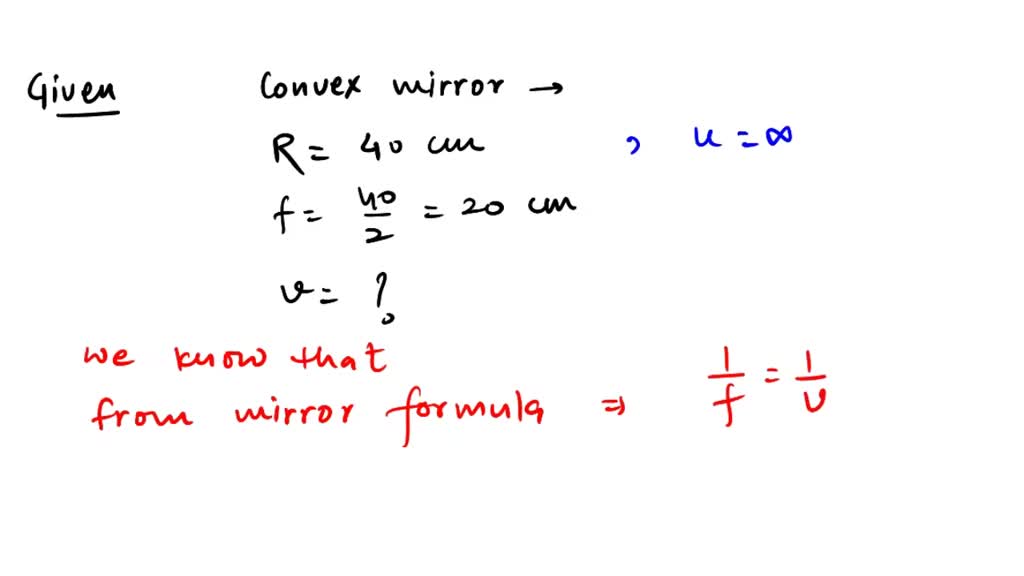 Given Convex mirror →
R = 40 cm , u = ∞
f = 40/2 = 20 cm
v = ?
we know that
from mirror formula ⇒ 1/f = 1/v